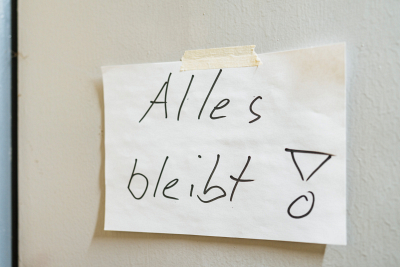 Alles
bleibt !